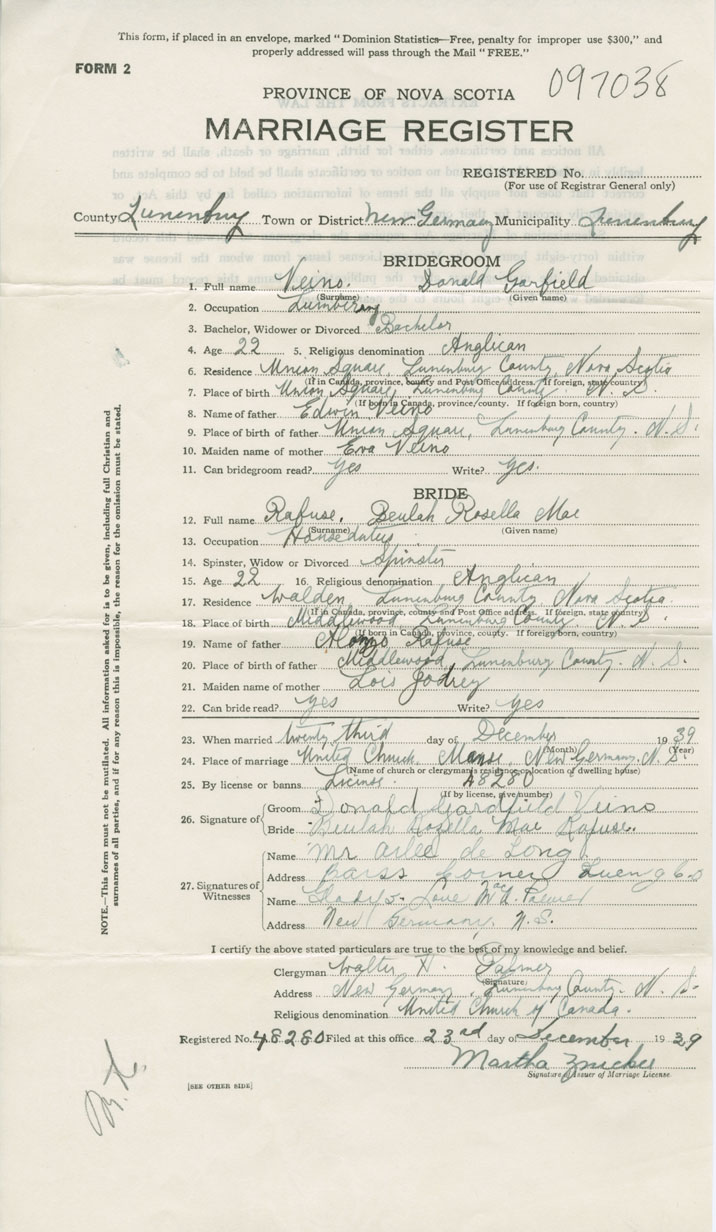 This form, if placed in an envelope, marked " Dominion Statistics—Free, penalty for improper use $300," and
properly addressed will pass through the Mail " FREE."
FORM 2
097038
PROVINCE OF NOVA SCOTIA
MARRIAGE REGISTER
REGISTERED No.
(For use of Registrar General only)
County Lunenburg Town or District New Germany Municipality Lunenburg
BRIDEGROOM
1. Full name Veino. Donald Garfield
(Surname) (Given name)
2. Occupation Lumbering
3. Bachelor, Widower or Divorced Bachelor
4. Age 22 5. Religious denomination Anglican
6. Residence Union Square, Lunenburg County, Nova Scotia
(If in Canada, province, county and Post Office address. If foreign, state country)
7. Place of birth Union Square, Lunenburg County N. S.
(If born in Canada, province/county. If foreign born, country)
8. Name of father Edwin Veino
9. Place of birth of father Union Square, Lunenburg County. N. S.
10. Maiden name of mother Eva Veino
11. Can bridegroom read? Yes Write? Yes.
BRIDE
12. Full name Rafuse, Beulah Rosella Mae
(Surname) (Given name)
13. Occupation Houseduties
14. Spinster, Widow or Divorced Spinster
15. Age 22 16. Religious denomination Anglican
17. Residence Walden, Lunenburg County Nova Scotia.
(If in Canada, province, county and Post Office address. If foreign, state country)
18. Place of birth Middlewood, Lunenburg County. N. S.
(If born in Canada, province, county. If foreign born, country)
19. Name of father Alonzo Rafuse
20. Place of birth of father Middlewood, Lunenburg County. N. S.
21. Maiden name of mother Lois Godrey
22. Can bride read? Yes Write? Yes
23. When married twenty third day of December 1939
(Month) (Year)
24. Place of marriage United Church Manse, New Germany. N. S.
(Name of church or clergyman's residence, or location of dwelling house)
25. By license or banns License. A8280
(If by license, give number)
26. Signature of Groom Donald Gardfield Veino
Bride Beulah Rosella Mae Rafuse.
27. Signatures of Witnesses
Name Mr Arlee de Long
Address Barss Corner Luen
Name Gladys Palmer
Address New Germany, N.S.
I certify the above stated particulars are true to the best of my knowledge and belief.
Clergyman Walter H. Palmer
(Signature)
Address New Germany, Lunenburg County. N. S.
Religious denomination United Church of Canada.
Registered No. 48280 Filed at this office 23rd day of December 1939
Martha Zwicker
Signature of Issuer of Marriage License
[SEE OTHER SIDE]
NOTE.—This form must not be mutilated. All information asked for is to be given, including full Christian and
surnames of all parties, and if for any reason this is impossible, the reason for the omission must be stated.